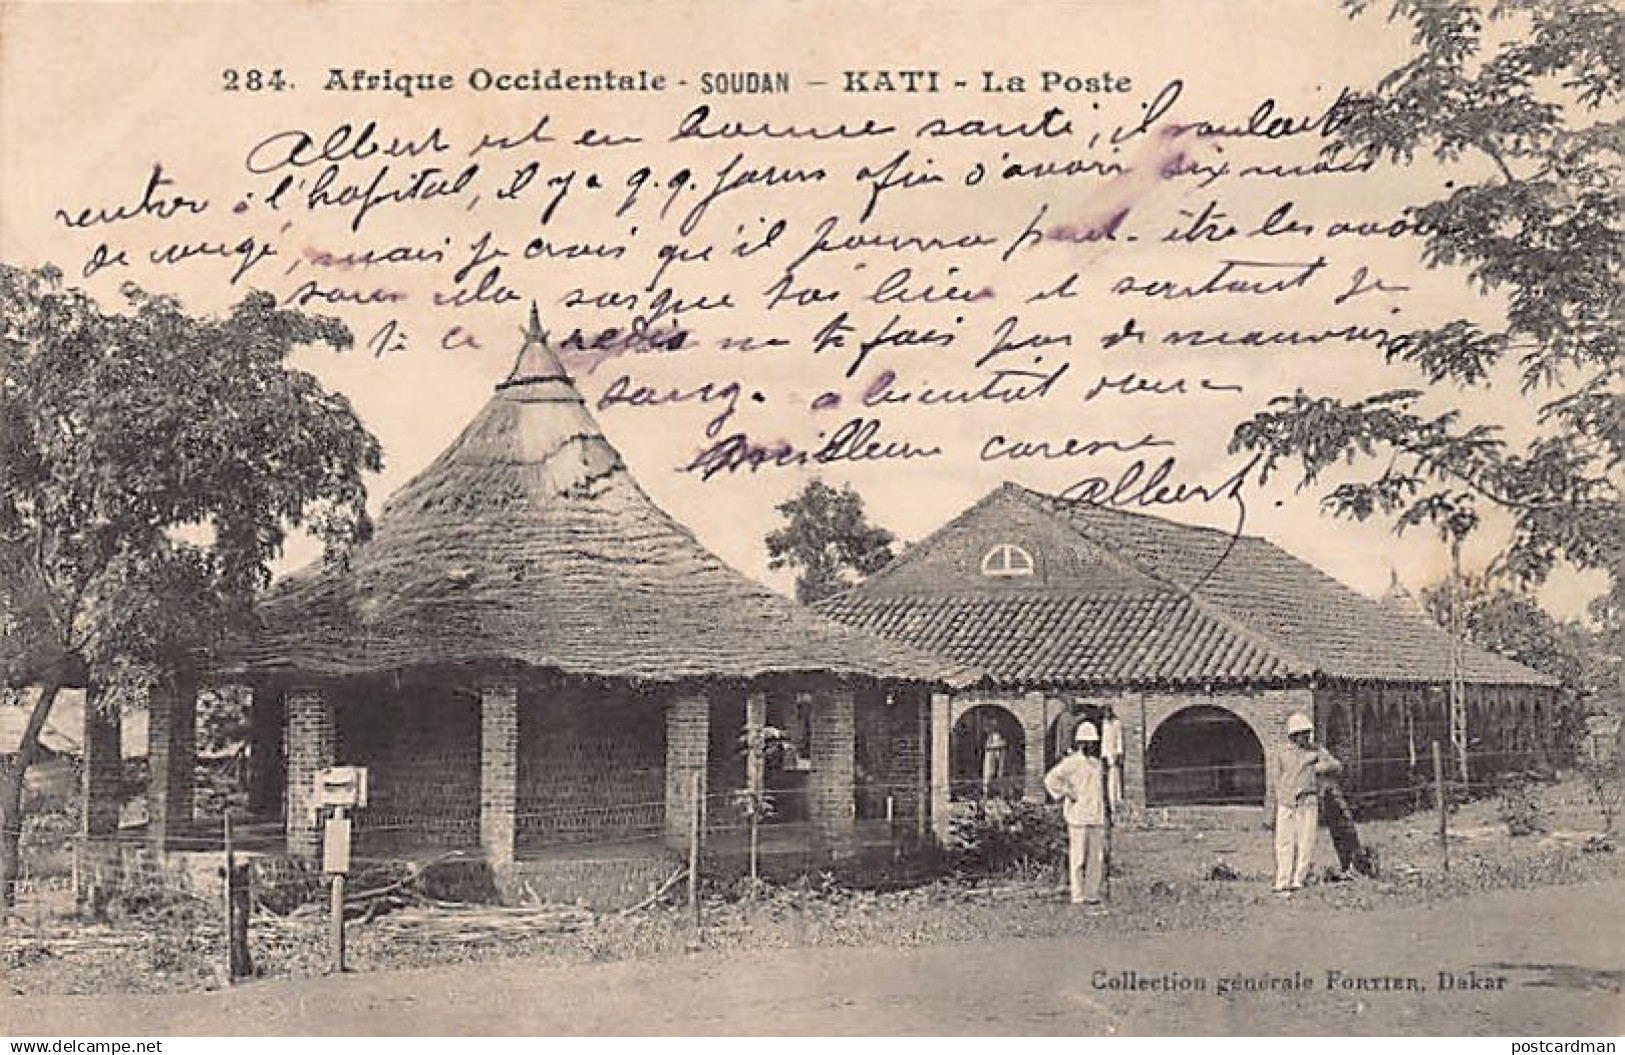 284. Afrique Occidentale - SOUDAN - KATI - La Poste
Albert est en bonne santé, il voulait
rentrer à l'hôpital, il y a q.q. jours afin d'avoir six mois
de congé, mais je crois qu'il pourra peut-être les avoir
sans cela
et surtout je
te le redis ne te fais pas de mauvais
sang. a bientôt
Meilleure caresse
Albert.
Collection générale FORTIER, Dakar
delcampe.net
postcardman